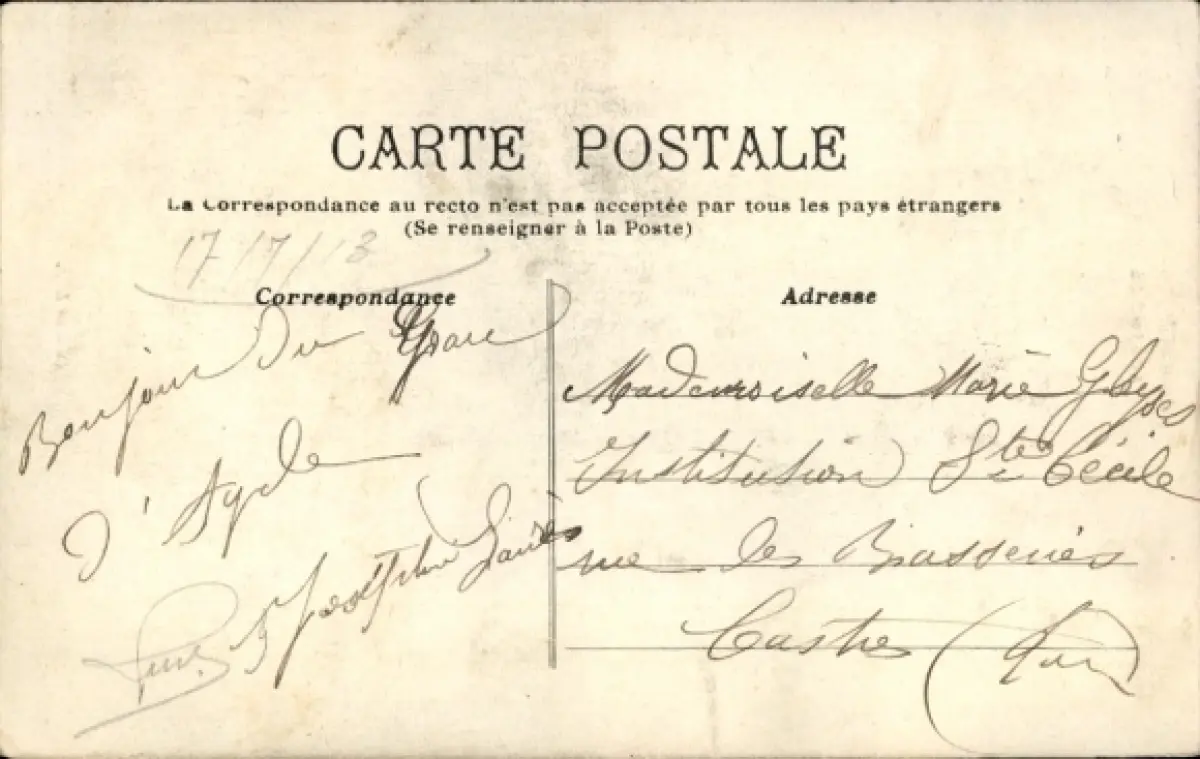 CARTE POSTALE
La Correspondance au recto n'est pas acceptée par tous les pays étrangers
(Se renseigner à la Poste)
17/17/13
Correspondance
Adresse
Bonjour du
d'Agde
Mademoiselle Marie
Institution Ste Cécile
rue des Brasseries
Castres (Tarn